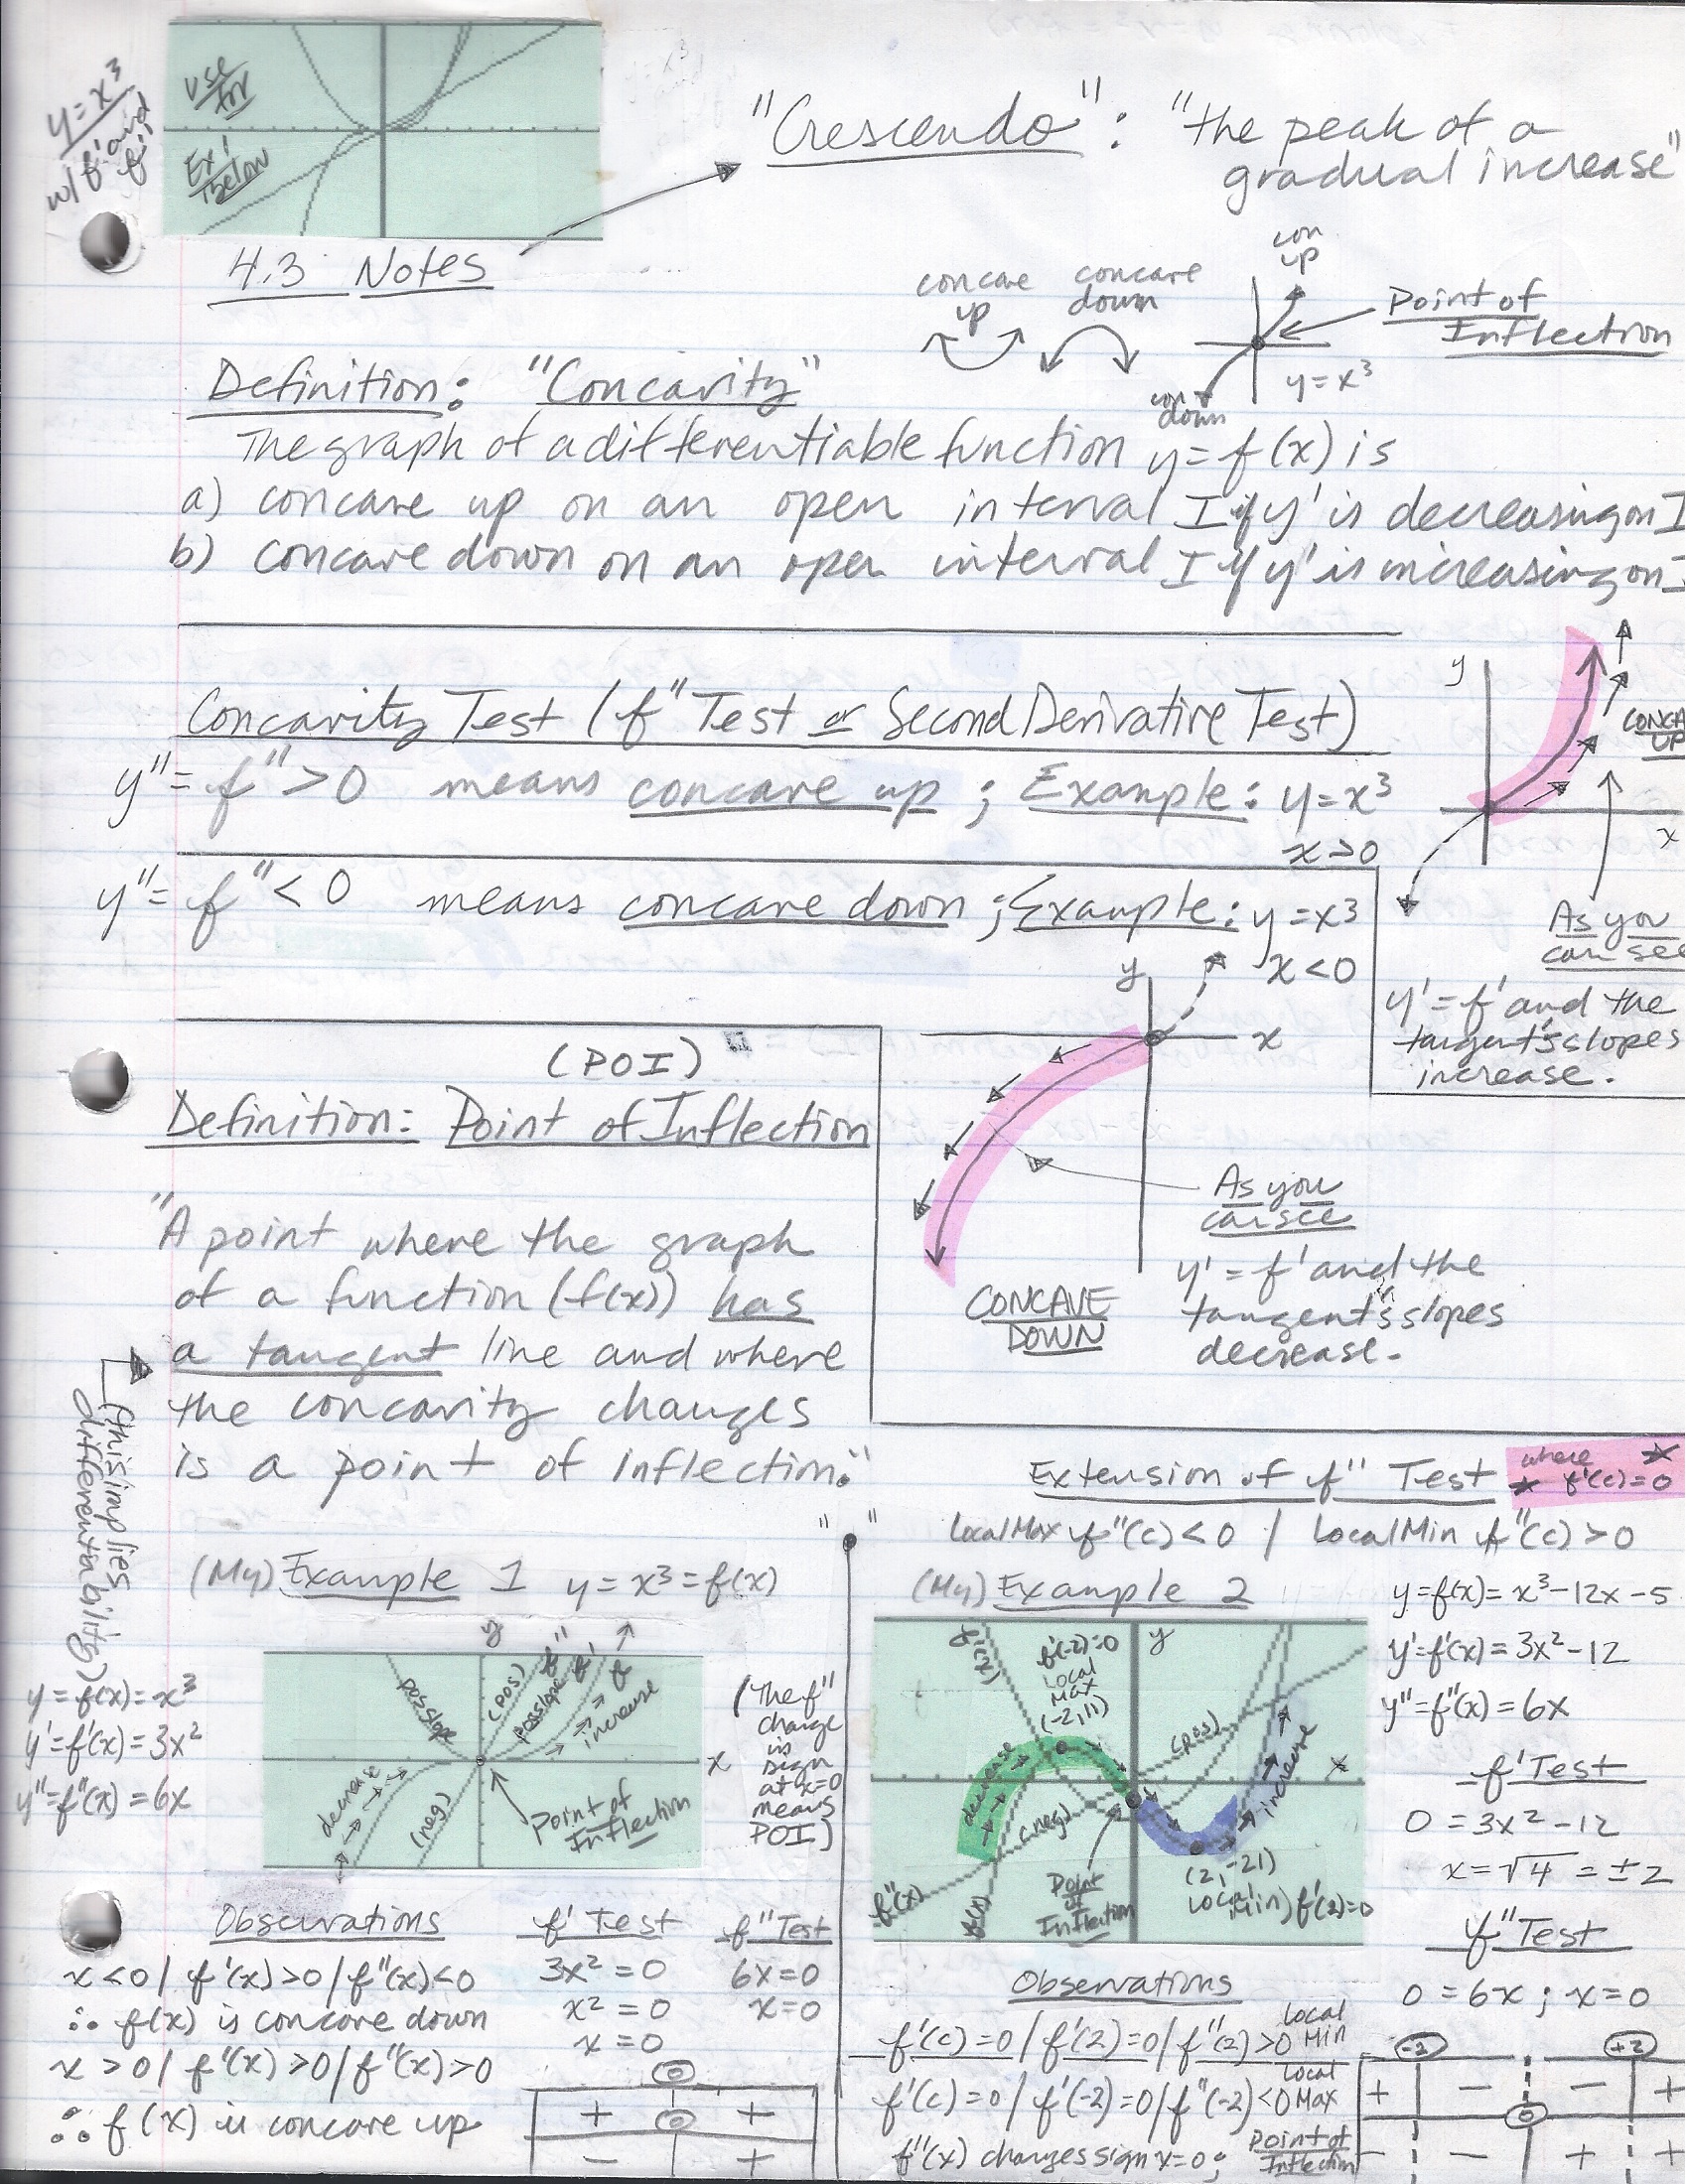 y=x³
w/ f' and
f"
Use
for
Ex 1
Below
"Crescendo": "the peak of a
gradual increase"
4.3 Notes
concave
up
concave
down
con
up
Point of
Inflection
y=x³
con
down
Definition: "Concavity"
The graph of a differentiable function y=f(x) is
a) concave up on an open interval I if y' is decreasing on I
b) concave down on an open interval I if y' is increasing on I
Concavity Test (f" Test or Second Derivative Test)
y"=f">0 means concave up; Example: y=x³
x>0
y
x
CONCA
UP
As you
can see
y'=f' and the
tangent's slopes
increase.
y"=f"<0 means concave down; Example: y=x³
x<0
y
x
As you
can see
y'=f' and the
tangent's slopes
decrease.
CONCAVE
DOWN
(POI)
Definition: Point of Inflection
"A point where the graph
of a function (f(x)) has
a tangent line and where
the concavity changes
is a point of inflection."
(this implies
differentiability)
Extension of f" Test
where
f'(c)=0
Local Max f"(c)<0 / Local Min f"(c)>0
(My) Example 1 y=x³=f(x)
y=f(x)=x³
y'=f'(x)=3x²
y"=f"(x)=6x
y
f"
f'
f
pos slope
(pos)
pos slope
increase
x
decrease
(neg)
Point of
Inflection
(The f"
change
in
sign
at x=0
means
POI)
Observations
x<0 / f'(x)>0 / f"(x)<0
∴ f(x) is concave down
x>0 / f'(x)>0 / f"(x)>0
∴ f(x) is concave up
f' Test
3x²=0
x²=0
x=0
f" Test
6x=0
x=0
0
+ 0 +
− +
(My) Example 2
y=f(x)=x³−12x−5
y'=f'(x)=3x²−12
y"=f"(x)=6x
f'(x)
f'(-2)=0
Local
Max
(-2,11)
y
(pos)
x
decrease
increase
(neg)
f"(x)
f(x)
Point
of
Inflection
(2,-21)
Local
Min) f'(2)=0
f' Test
0=3x²−12
x=√4=±2
f" Test
0=6x; x=0
Observations
f'(c)=0 / f'(2)=0 / f"(2)>0 Local Min
f'(c)=0 / f'(-2)=0 / f"(-2)<0 Local Max
f"(x) changes sign x=0; Point of Inflection
-2 +2
+ − − +
0
− − + +